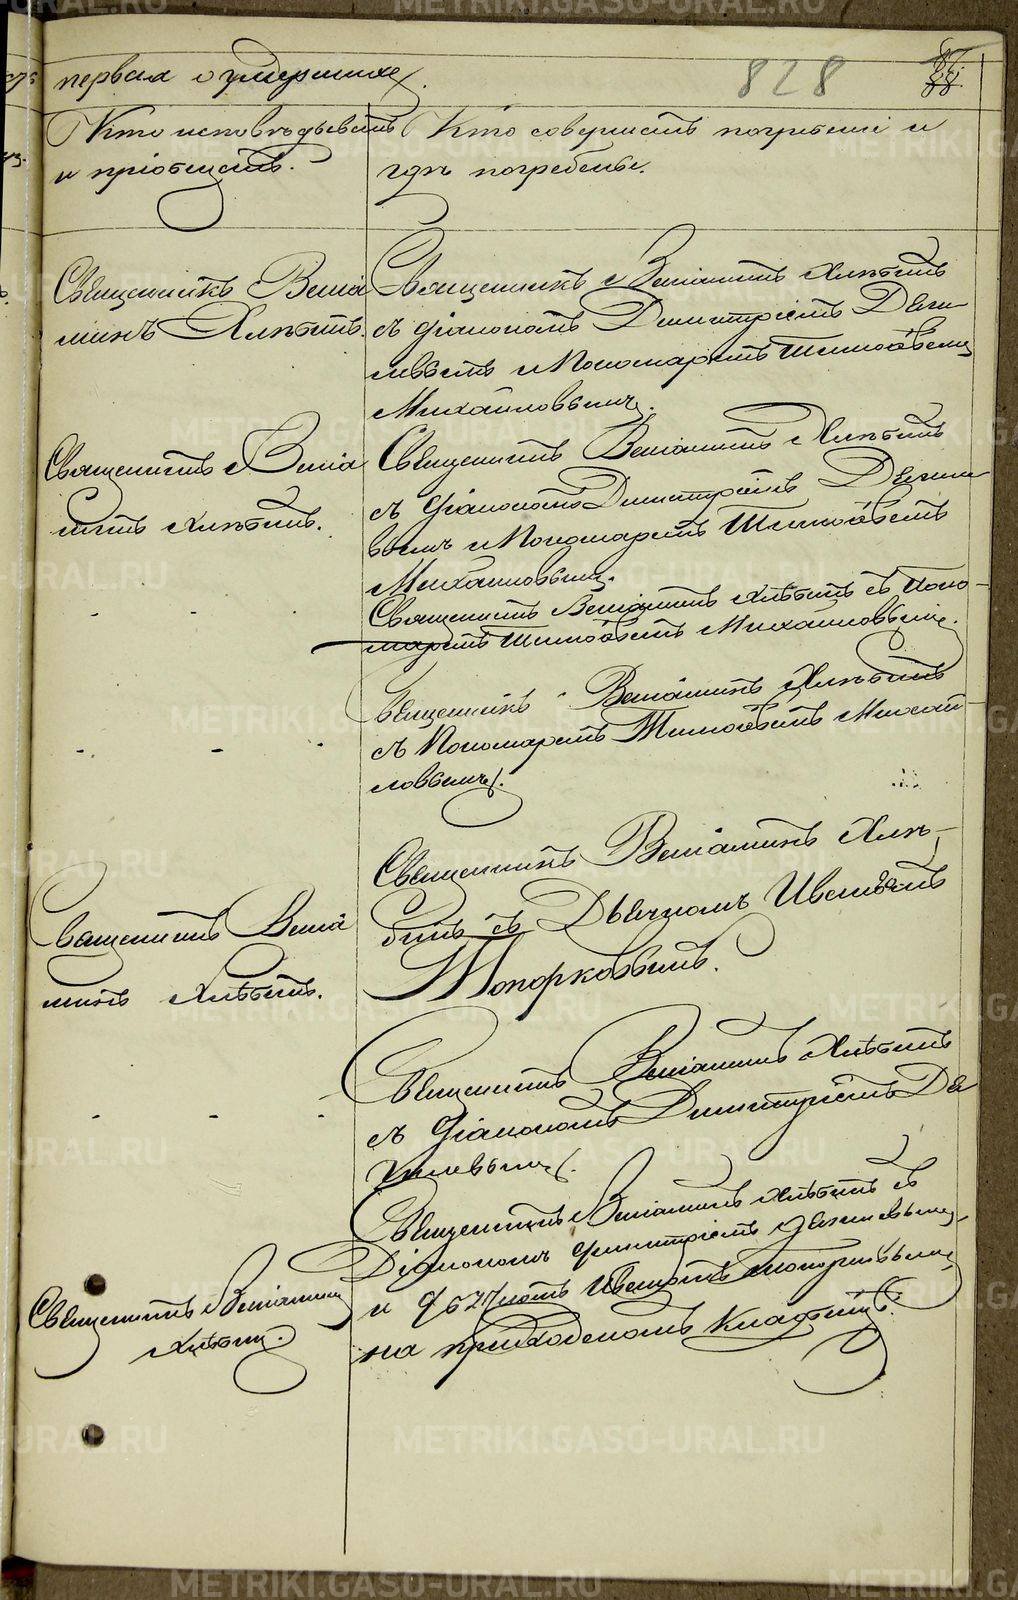 первая о умершихъ.
828
88.
Кто исповѣдывалъ
и пріобщалъ.
Кто совершалъ погребеніе и
гдѣ погребены.
Священникъ Веніа
минъ Хлѣбинъ.
Священникъ Веніаминъ Хлѣбинъ
съ діакономъ Димитріемъ Дяги
левымъ и Пономаремъ Тимоѳѣемъ
Михайловымъ.
Священникъ Веніа
минъ Хлѣбинъ.
Священникъ Веніаминъ Хлѣбинъ
съ діакономъ Димитріемъ Дягиле
вымъ и Пономаремъ Тимоѳѣемъ
Михайловымъ.
Священникъ Веніаминъ Хлѣбинъ съ Поно-
маремъ Тимоѳѣемъ Михайловымъ.
Священникъ Веніаминъ Хлѣбинъ
съ Пономаремъ Тимоѳѣемъ Михай
ловымъ.
Священникъ Веніа
минъ Хлѣбинъ.
Священникъ Веніаминъ Хлѣ-
бинъ съ Дьячкомъ
Топорковымъ.
Священникъ Веніаминъ Хлѣбинъ
съ діакономъ Димитріемъ Дя
гилевымъ.
Священникъ Веніаминъ
Хлѣбинъ.
Священникъ Веніаминъ Хлѣбинъ съ
Діакономъ Димитріемъ Дягилевымъ
и Дьячкомъ Топорковымъ
на приходскомъ кладбищѣ.
METRIKI.GASO-URAL.RU